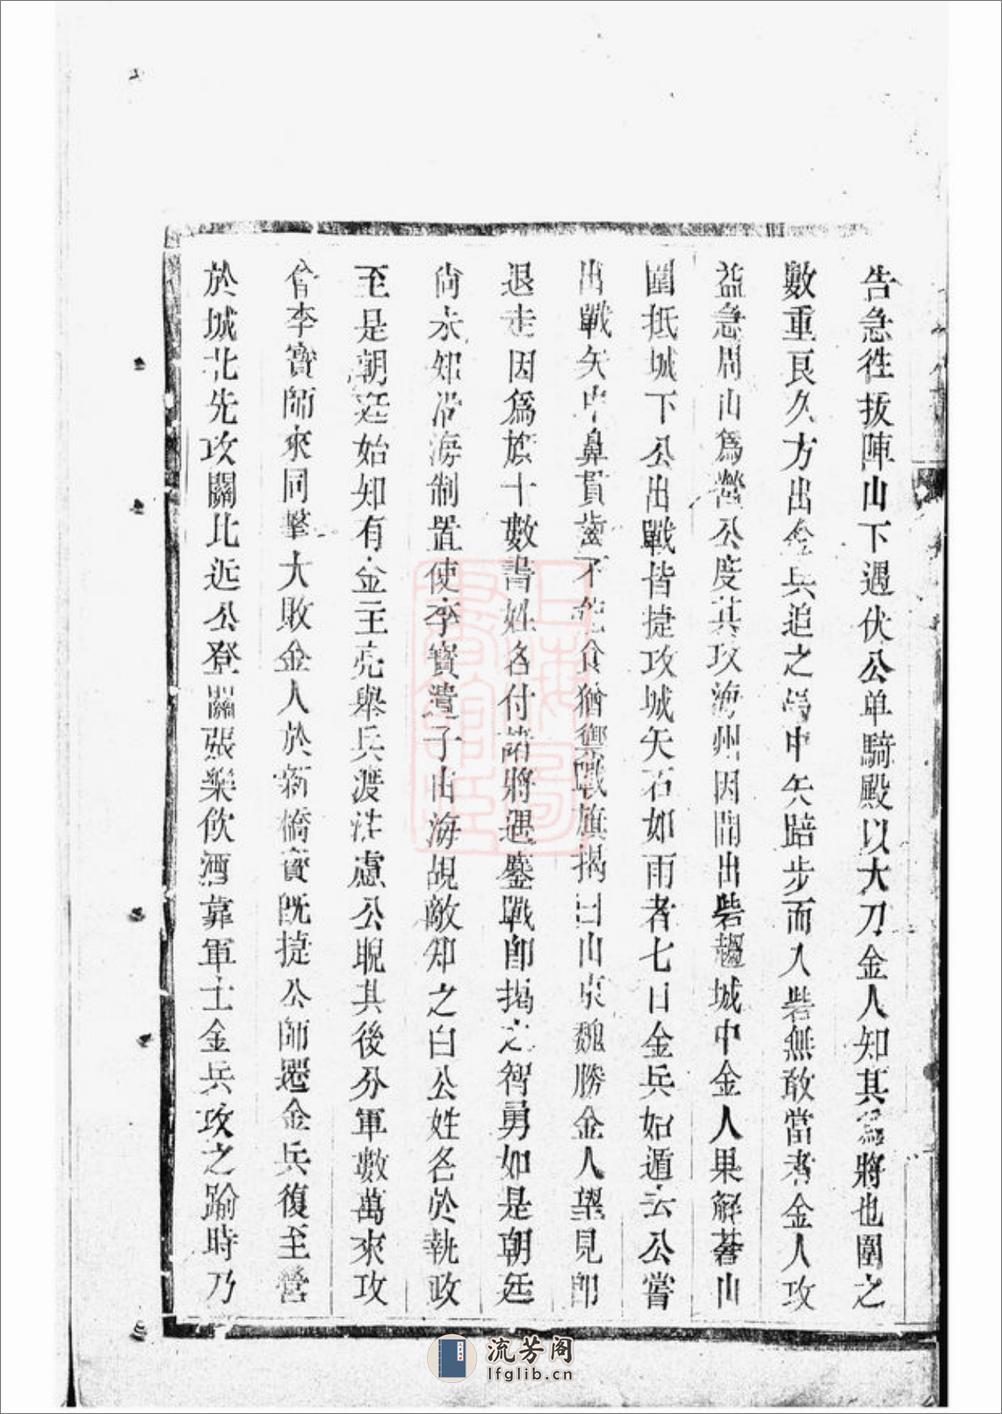 告急往拔陣山下遇伏公单騎殿以大刀金人知其爲將也圍之
數重良久方出金兵追之馬中矢踣步而入砦無敢當者金人攻
益急周山爲營公度其攻海州因間出砦趨城中金人果解蒼山
圍抵城下公出戰皆捷攻城矢石如雨者七日金兵始遁去公嘗
出戰矢中鼻貫齒不能食猶禦戰旗揭曰山東魏勝金人望見卽
退走因爲旗十數書姓名付諸將遇鏖戰卽揭之智勇如是朝廷
尙未知沿海制置使李寶遣子由海覘敵知之白公姓名於執政
至是朝廷始知有金主亮舉兵渡淮慮公睨其後分軍數萬來攻
會李寶師來同擊大敗金人於新橋寶旣捷公師還金兵復至營
於城北先攻關北近公登關張樂飲酒犒軍士金兵攻之踰時乃
上海圖書館藏
流芳阁
lfglib.cn